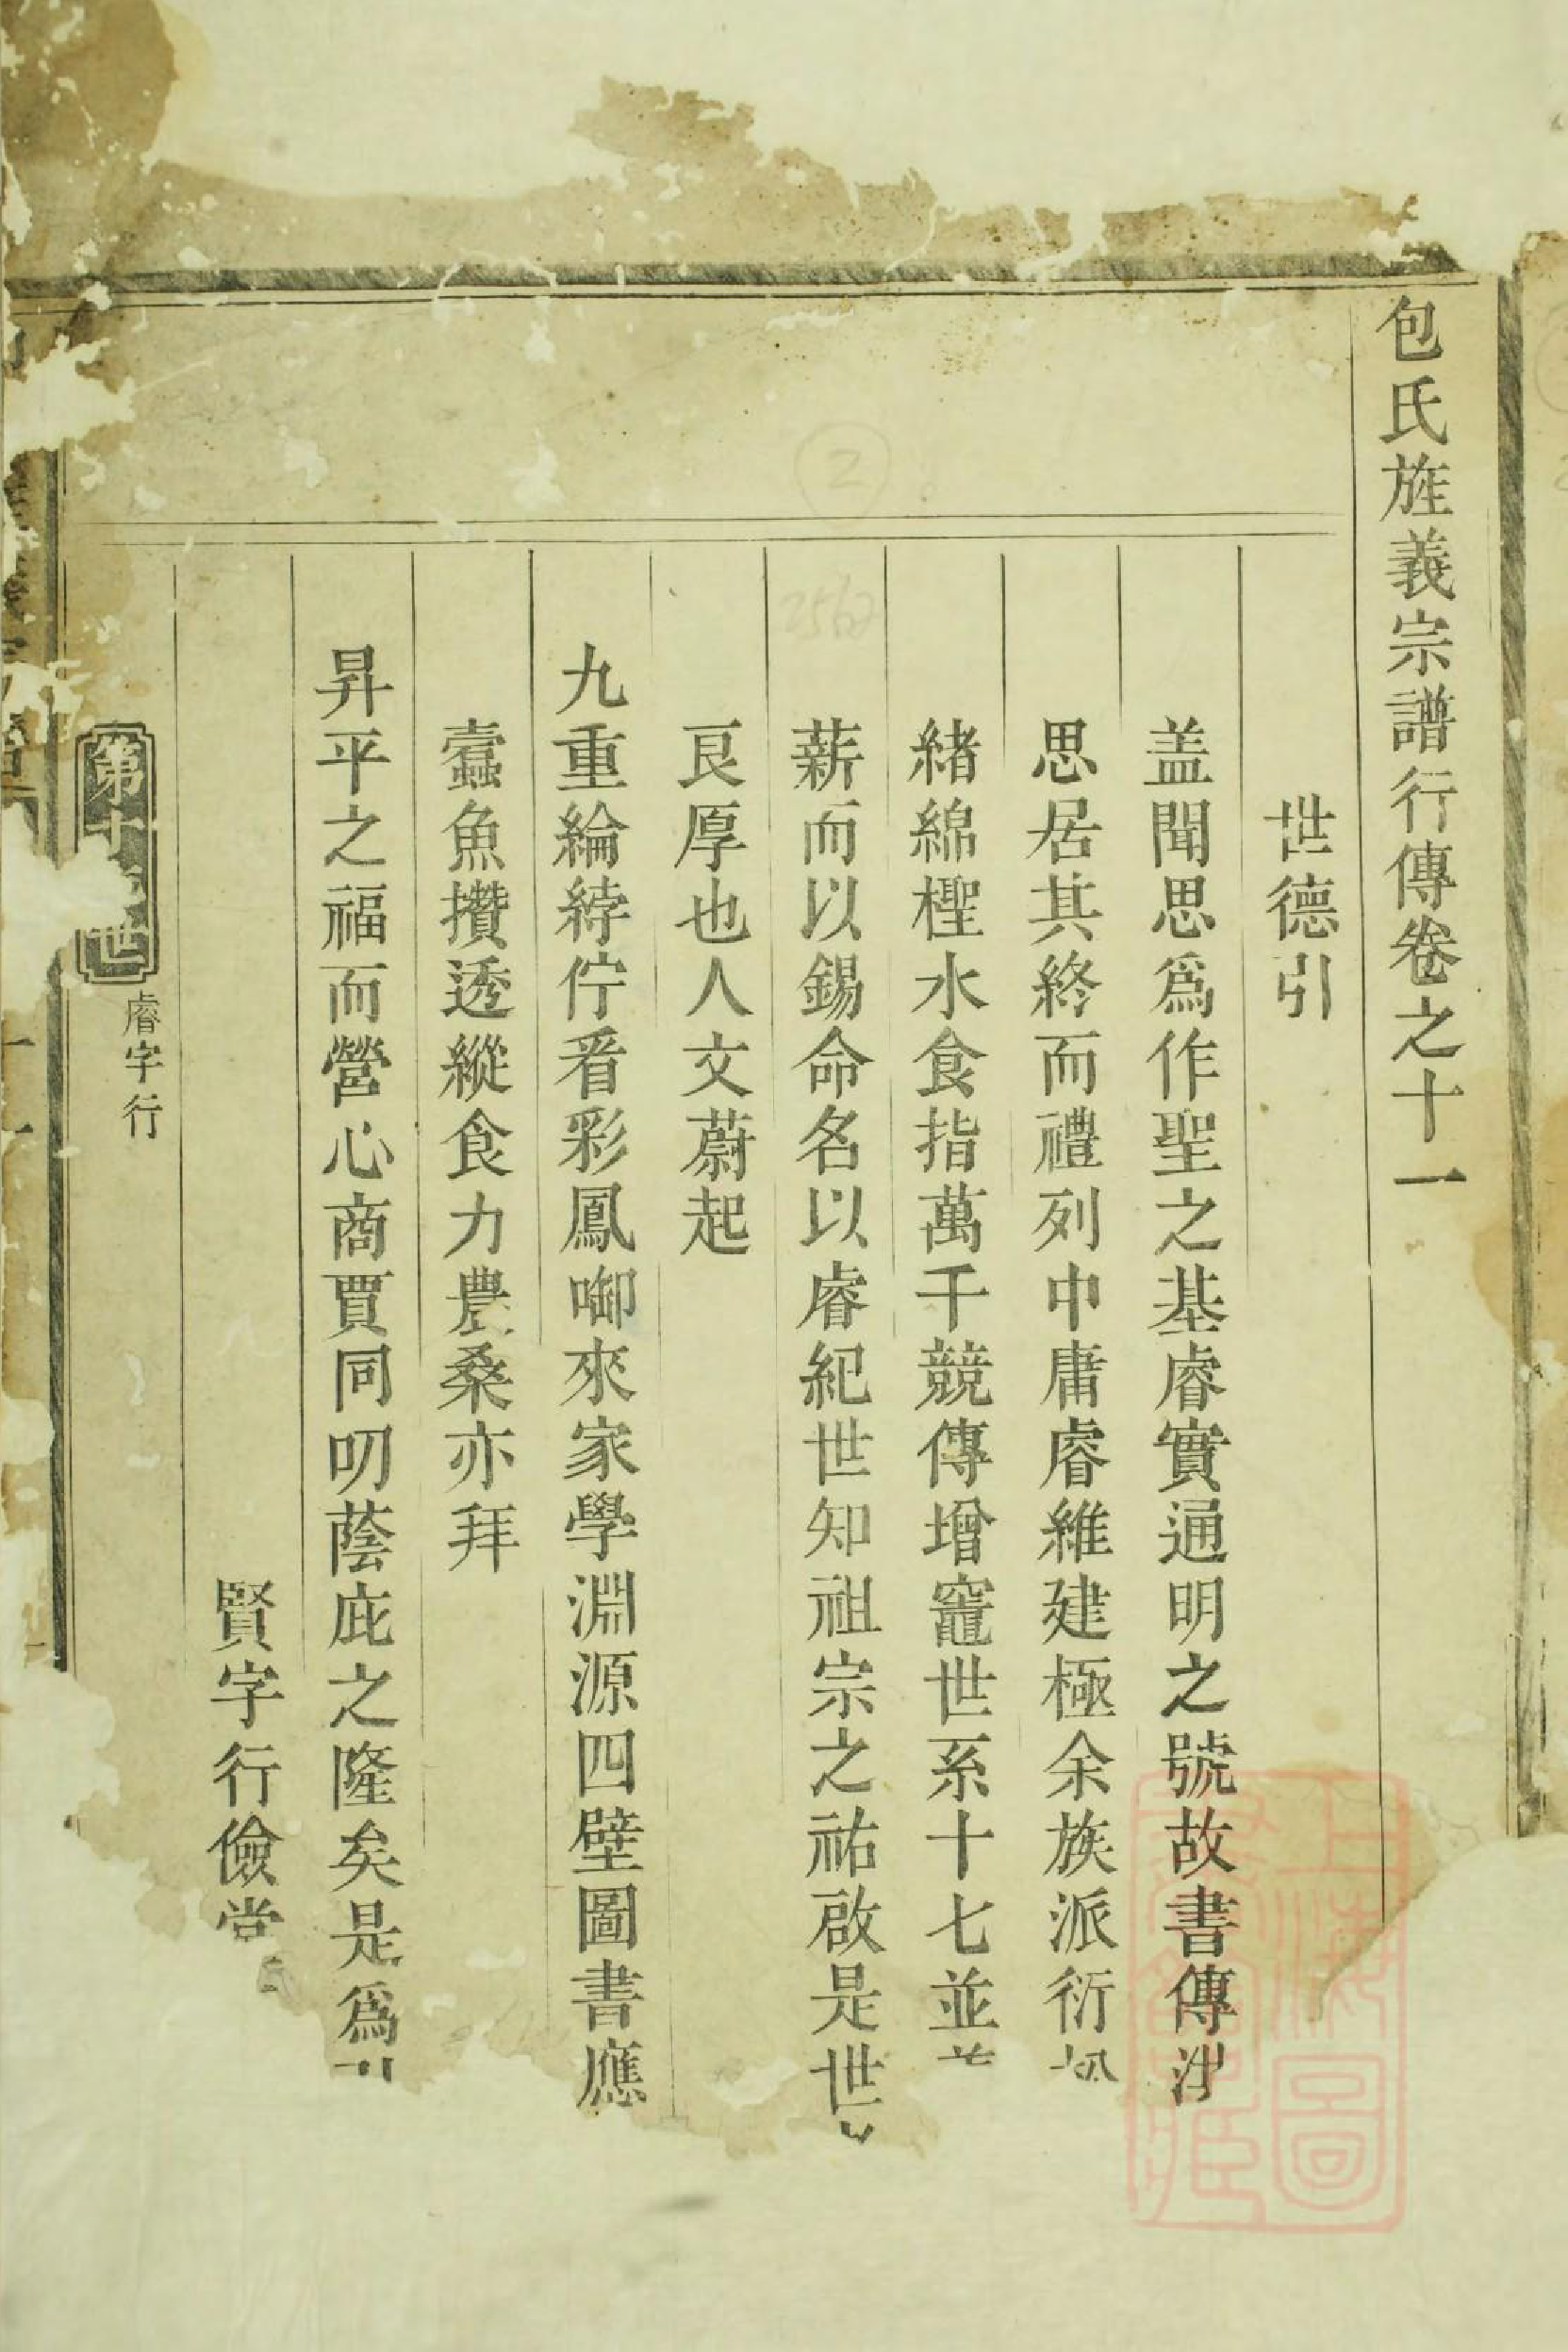 包氏旌義宗譜行傳卷之十一
世德引
盖聞思爲作聖之基睿實通明之號故書傳洪
思居其終而禮列中庸睿維建極余族派衍
緒綿檉水食指萬千競傳增竈世系十七並
薪而以錫命名以睿紀世知祖宗之祐啟是世
良厚也人文蔚起
九重綸綍佇看彩鳳啣來家學淵源四壁圖書應
蠹魚攢透縱食力農桑亦拜
昇平之福而營心商賈同叨蔭庇之隆矣是爲引
賢字行儉堂
第十世
睿字行
2
2562
上海圖